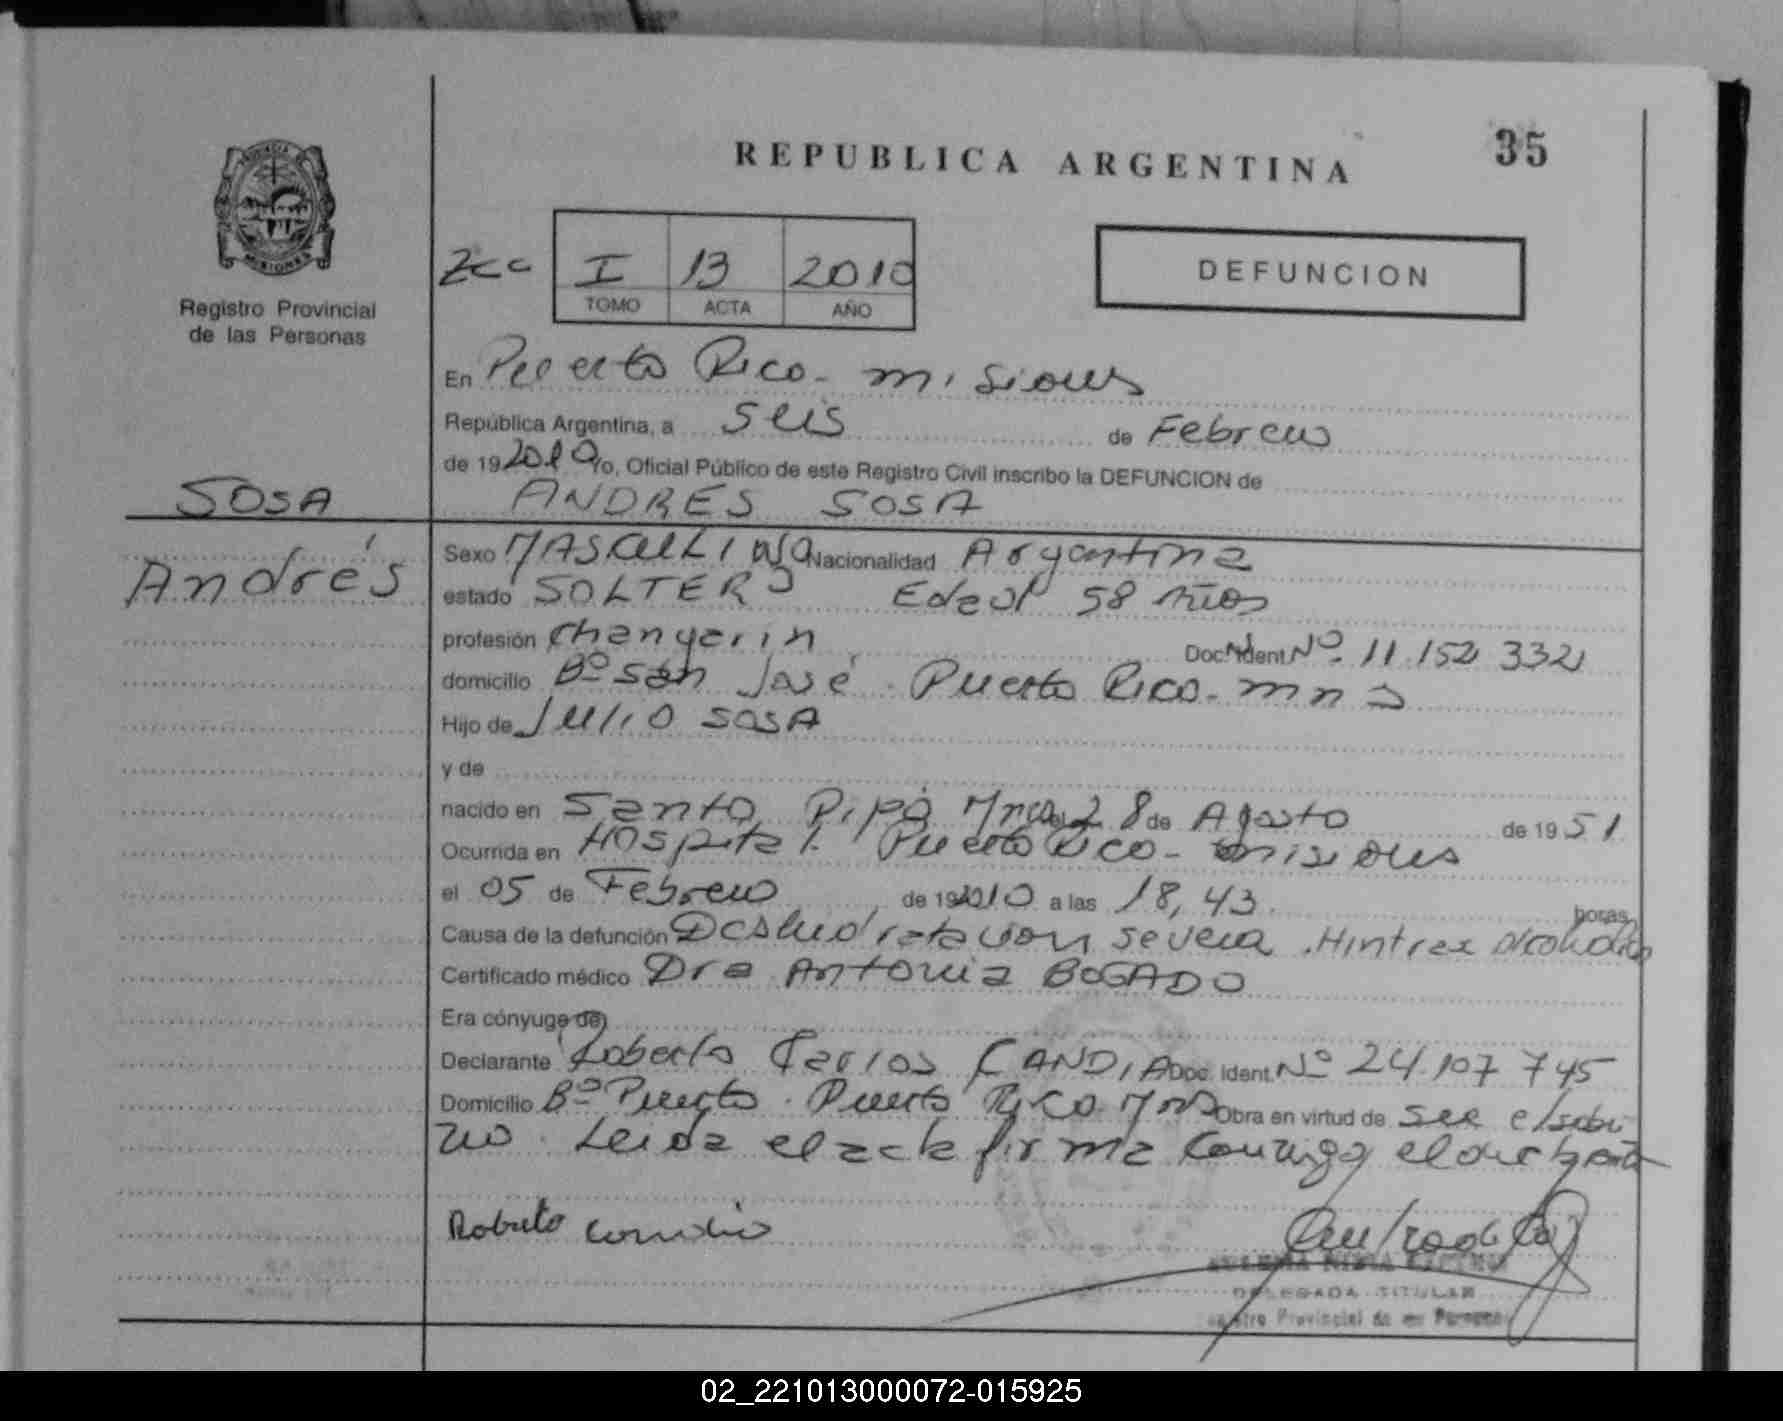 PROVINCIA DE
MISIONES
Registro Provincial
de las Personas
SOSA
Andrés
REPUBLICA ARGENTINA
35
I 13 2010
TOMO ACTA AÑO
DEFUNCION
En Puerto Rico - misiones
República Argentina, a seis de Febrero
de 19 2010 Yo, Oficial Público de este Registro Civil inscribo la DEFUNCION de
ANDRES SOSA
Sexo MASCULINO Nacionalidad Argentina
estado SOLTERO Edad 58 Años
profesión changarin Doc. Ident. Nº. 11.152 332
domicilio Bº San José. Puerto Rico - mns
Hijo de JULIO SOSA
y de
nacido en Santo Pipó Mnes el 28 de Agosto de 19 51
Ocurrida en Hospital. Puerto Rico - misiones
el 05 de Febrero de 19 2010 a las 18,43 horas
Causa de la defunción Deshidratación severa. Hintrex alcoholica
Certificado médico Dra Antonia BOGADO
Era cónyuge de
Declarante Roberto Carlos CANDIA Doc. Ident. Nº 24.107 745
Domicilio Bº Puerto. Puerto Rico Mns Obra en virtud de ser el sobri
no. Leida el acta firma conmigo el declarante
Roberto
DELEGADA TITULAR
Registro Provincial de las Personas
02_221013000072-015925